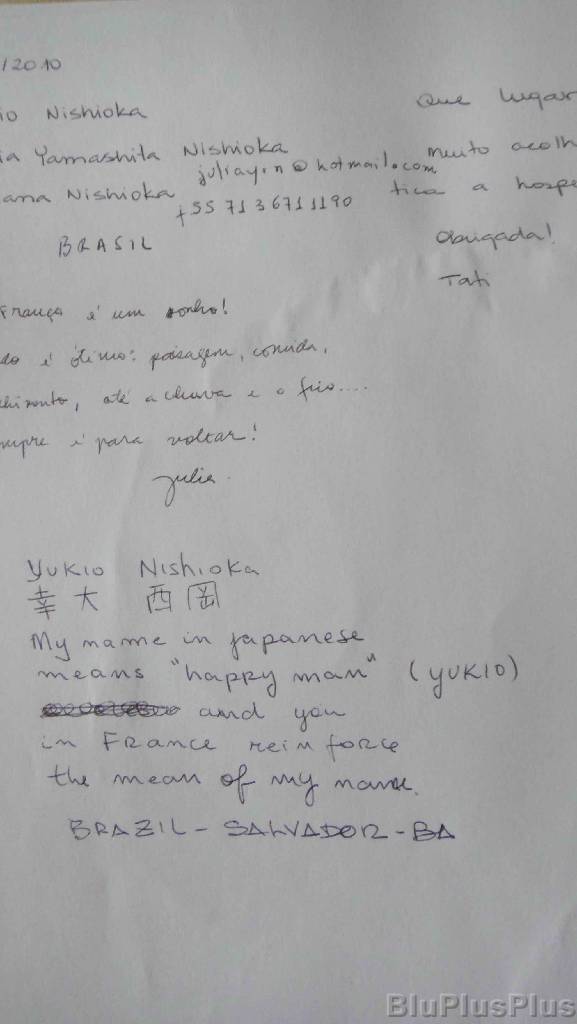 /2010
io Nishioka
ia Yamashita Nishioka
juliay.n@hotmail.com
ana Nishioka
+55 71 3671 1190
BRASIL
Que lugar
muito acolh
tica a hospe
Obrigada!
Tati
França é um sonho!
do é ótimo: paisagem, comida,
himento, até a chuva e o frio....
mpre é para voltar!
Julia.
YUKIO NISHIOKA
幸大 西岡
My name in japanese
means "happy man" (YUKIO)
and you
in FRANCE reinforce
the mean of my name.
BRAZIL - SALVADOR - BA
BluPlusPlus